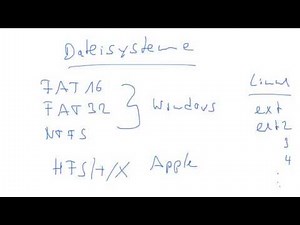 Dateisysteme
FAT16
FAT32
NTFS
Windows
HFS/+/X Apple
Linux
ext
ext2
3
4